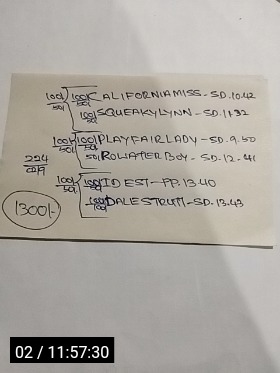 100/50/ 100/50/ CALIFORNIA MISS - SD.10.42
100/50/ SQUEAKY LYNN - SD.11.32
100/50/ 100/50/ PLAYFAIR LADY - SD.9.50
50/ ROWATER BOY - SD.12.41
224
100/50/ 100/50/ ID EST - PP.13.40
DALESTRUM - SD.13.43
1300/-
02 / 11:57:30